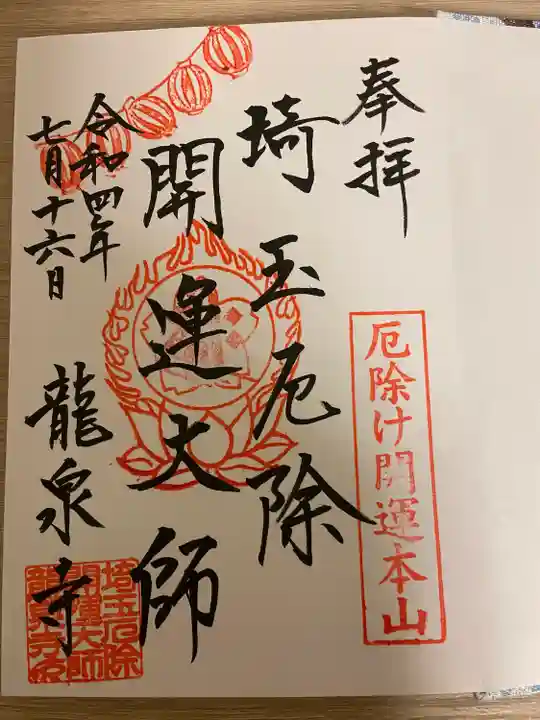 奉拝
厄除け開運本山
埼玉厄除
開運大師
令和四年
七月十六日
龍泉寺
埼玉厄除
開運大師
龍泉寺印